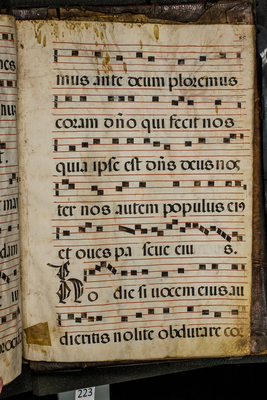 mus ante deum ploremus
coram dño qui fecit nos
quia ipse est dñs deus nos
ter nos autem populus eiꝰ
et oues pa scue eiu s.
Ho die si uocem eius au
dieritis nolite obdurare cor
223